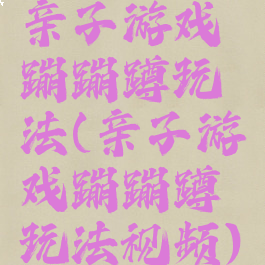 亲子游戏
蹦蹦蹲玩
法(亲子游
戏蹦蹦蹲
玩法视频)